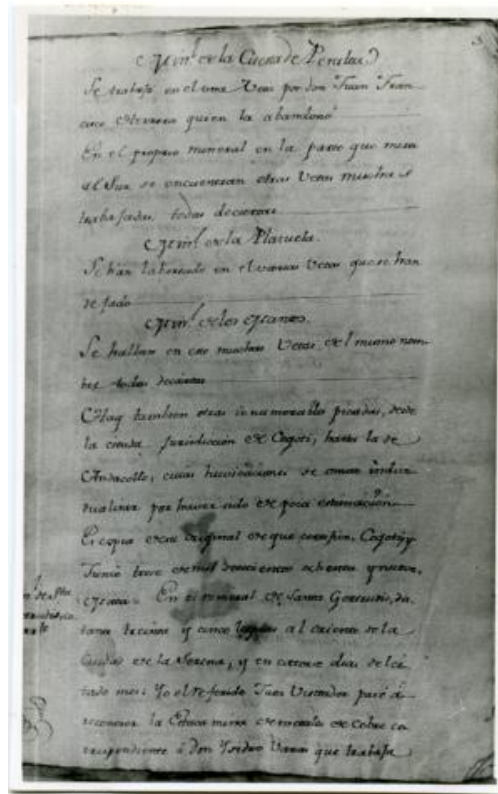 Minl. de la Cuesta de Peralta
Se trabajó en el una Veta por don Juan Fran
cisco Herrera quien la abandonó
En el proprio mineral en la parte que mira
al Sur se encuentran otras Vetas muchas
trabajadas, todas decierta
Minl. de la Plazuela.
Se han laboreado en el varias Vetas que se han
dejado
Minl. de los
Se hallan en este muchas Vetas del mismo nom
bre todas deciertas
Hay tambien otras innumerables picadas, desde
la citada jurisdiccion de Cogotí, hasta la de
Andacollo, cuias se omite indivi
dualizar por haver sido de poca estimación
Es copia de su original de que certifico, Cogotí y
Junio trece de mil setecientos ochenta y nueve.
En el mineral de Santa Gertrudis, dis
tante treinta y cinco leguas al oriente de la
Ciudad de la Serena, y en catorce dias del ci
tado mes: Yo el referido Juez Visitador pasé á
reconocer la Estaca mina de metales de Cobre co
rrespondiente á Don Ysidro Varas que trabaja